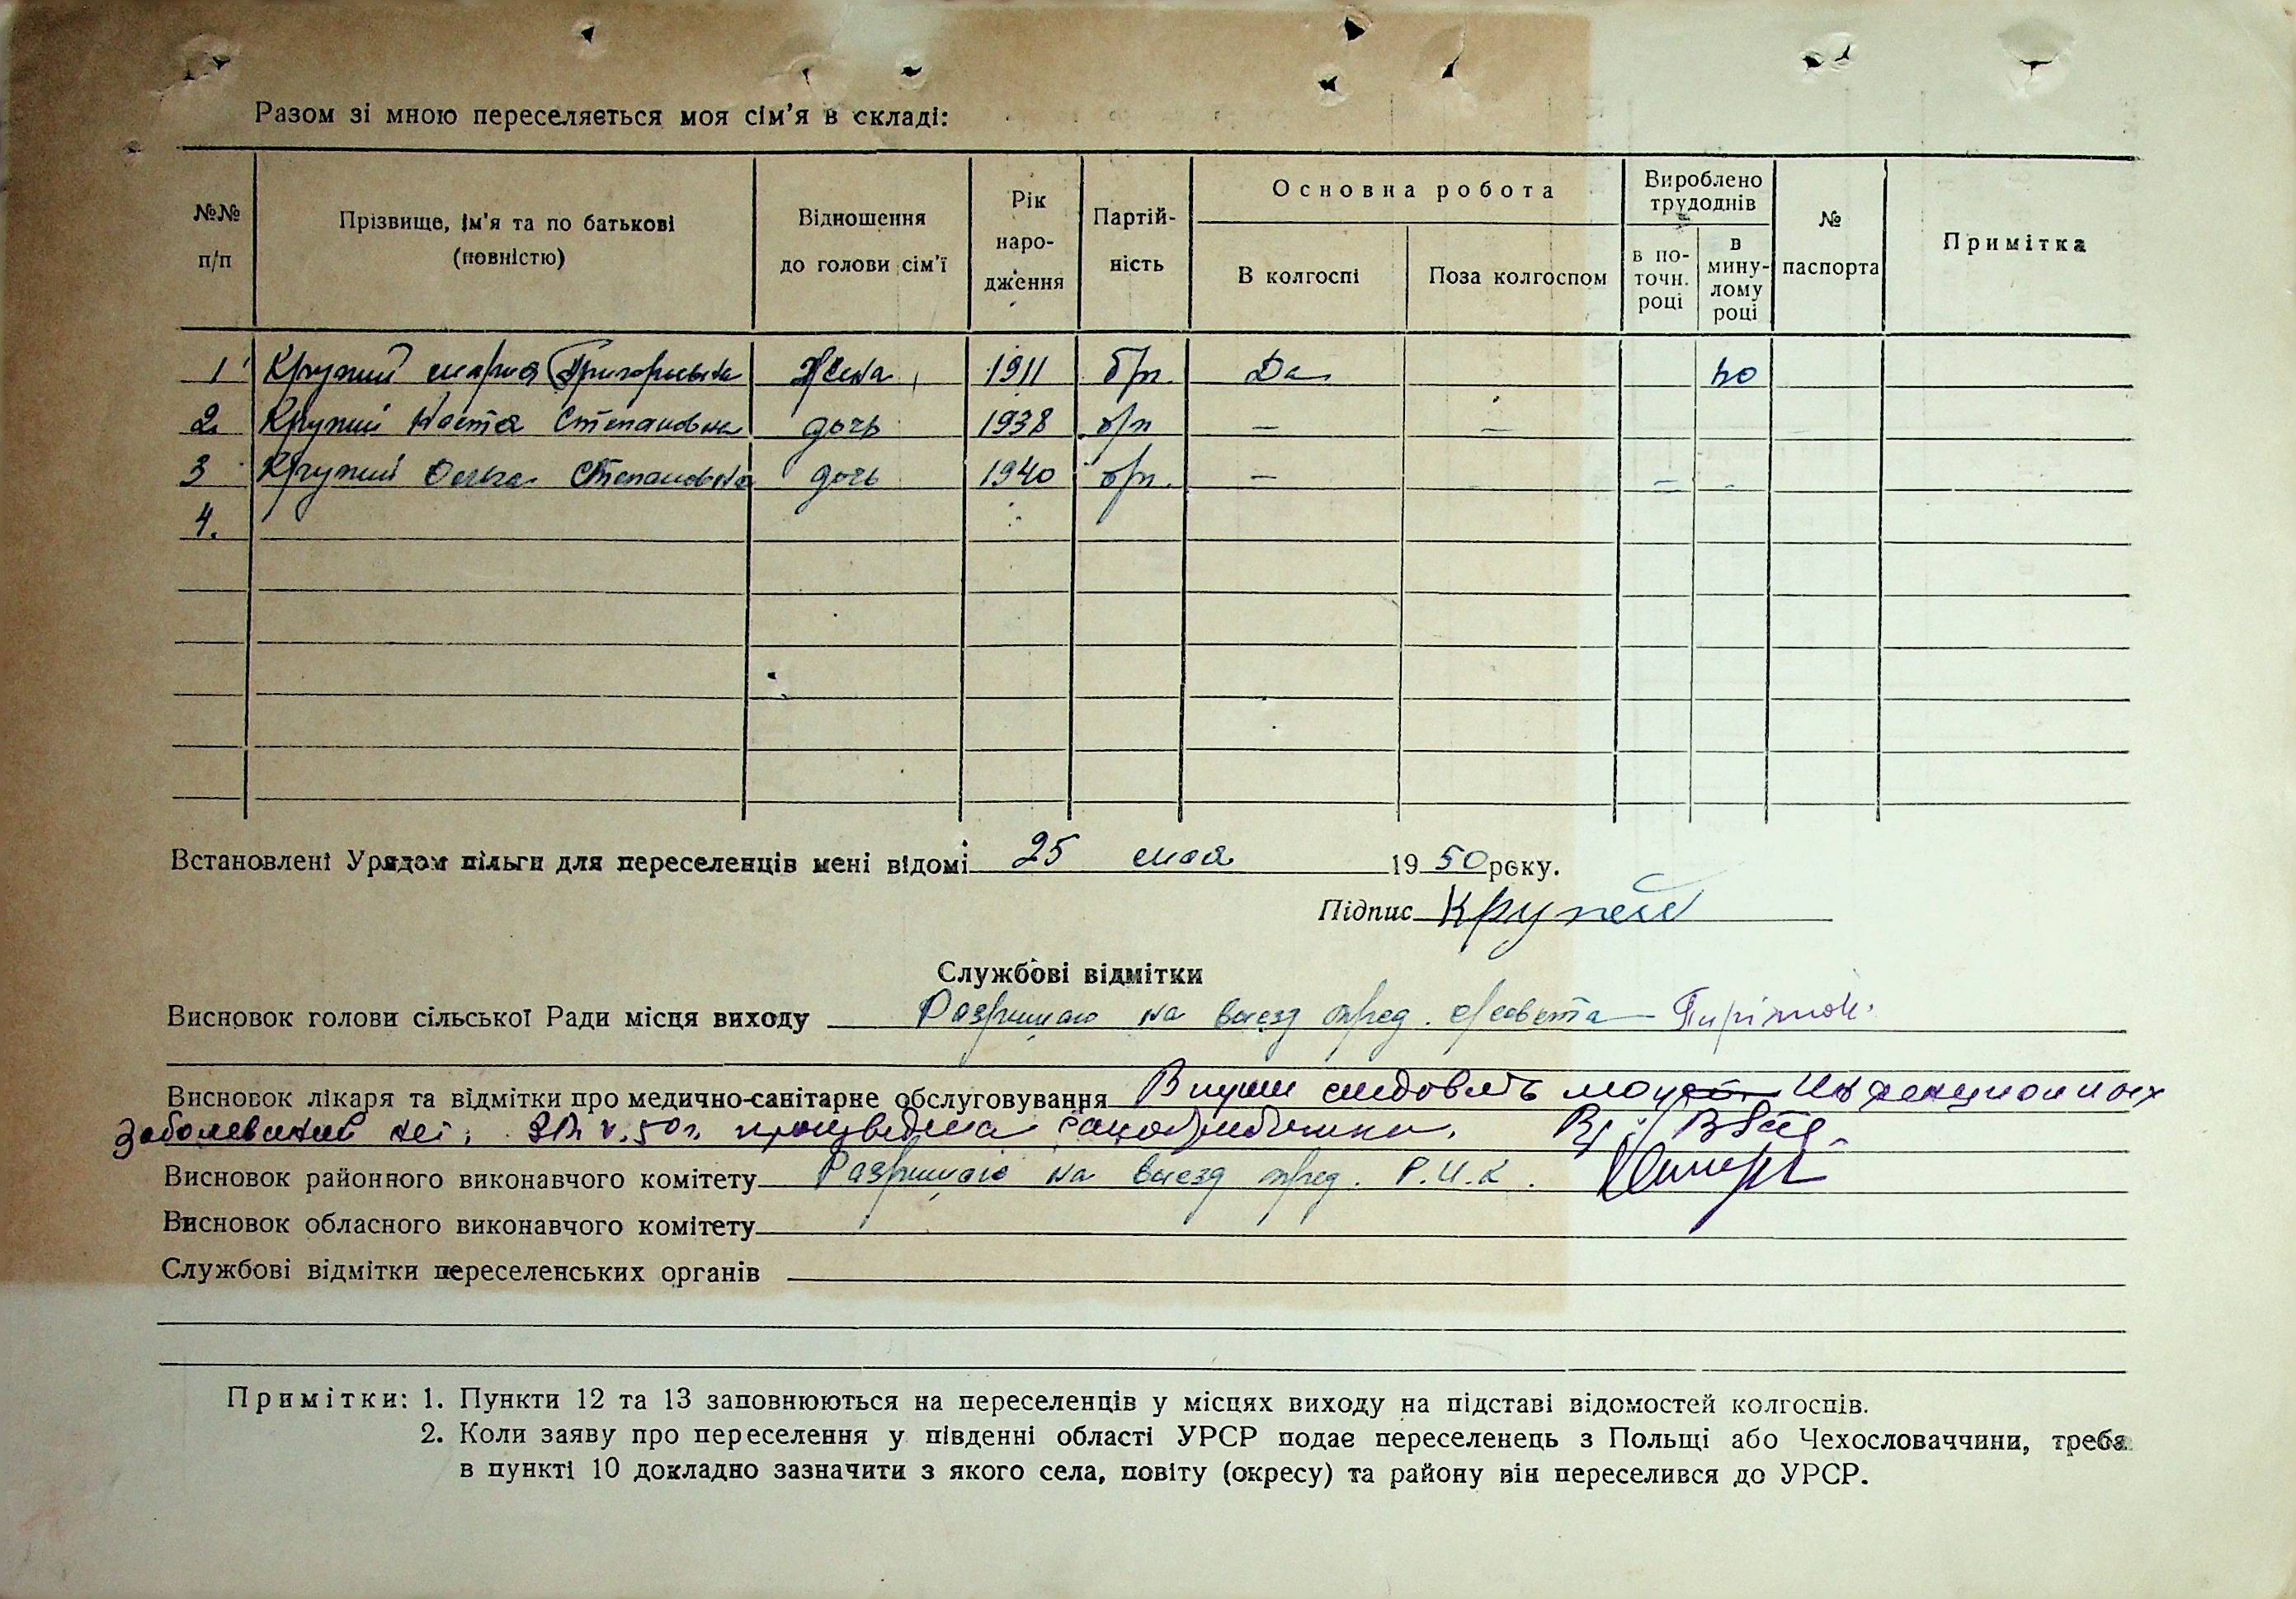 Разом зі мною переселяється моя сім'я в складі:
№№ п/п
Прізвище, ім'я та по батькові (повністю)
Відношення до голови сім'ї
Рік народження
Партійність
Основна робота
В колгоспі
Поза колгоспом
Вироблено трудоднів
в поточн. році
в минулому році
№ паспорта
Примітка
1 Крупий мария Григорьевна Жена 1911 б/п. Да
2. Крупий Настя Степановна дочь 1938 б/п — —
3 Крупий Ольга Степановна дочь 1940 б/п. — — -
4.
Встановлені Урядом пільги для переселенців мені відомі 25 мая 1950 року.
Підпис Крупей
Службові відмітки
Висновок голови сільської Ради місця виходу Разришаю на виезд пред. с/совета
Висновок лікаря та відмітки про медично-санітарне обслуговування В пути следовать могут Инфекционных
Заболеваний нет. V.50г. произведена санобработка.
Висновок районного виконавчого комітету Разришаю на виезд пред. Р.И.К.
Висновок обласного виконавчого комітету
Службові відмітки переселенських органів
Примітки: 1. Пункти 12 та 13 заповнюються на переселенців у місцях виходу на підставі відомостей колгоспів.
2. Коли заяву про переселення у південні області УРСР подає переселенець з Польщі або Чехословаччини, треба
в пункті 10 докладно зазначити з якого села, повіту (окресу) та району він переселився до УРСР.